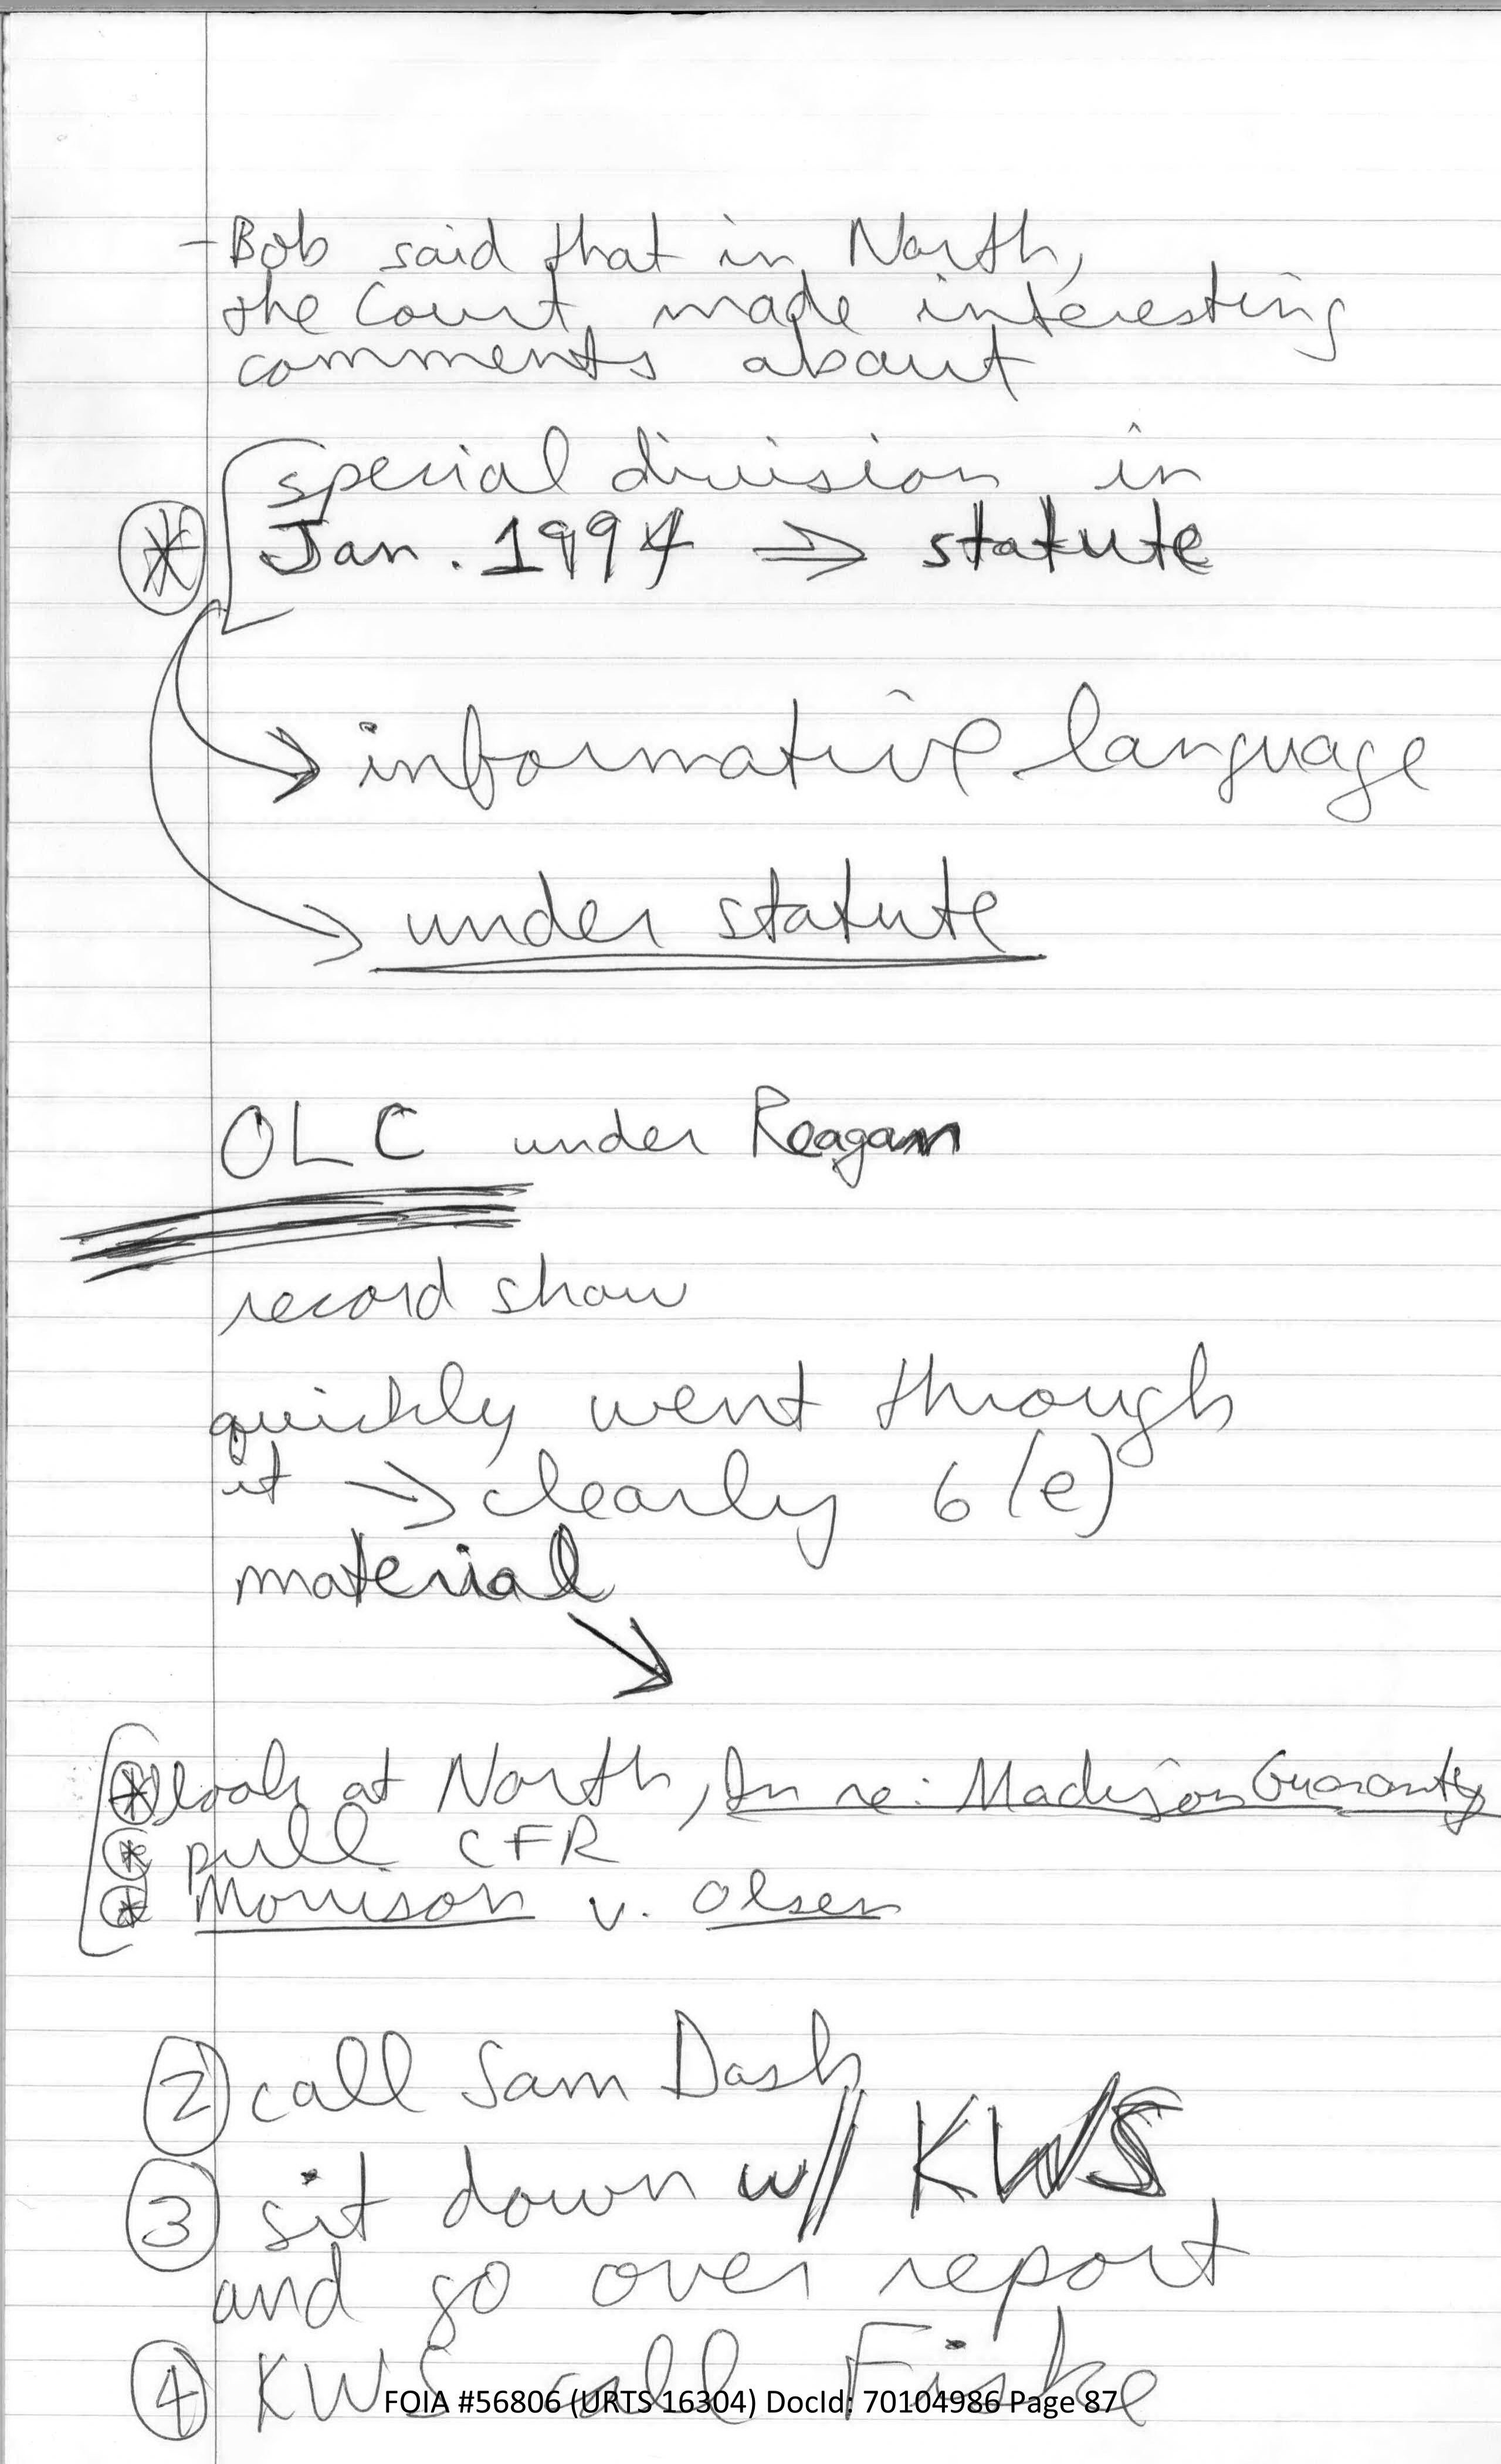 - Bob said that in North,
the Court made interesting
comments about
special division in
* Jan. 1994 ⇒ statute
→ informative language
→ under statute
OLC under Reagan
record show
quickly went through
it → clearly 6(e)
material
* look at North, In re: Madison Guaranty
* pull CFR
* Morrison v. Olsen
2 call Sam Dash
3 sit down w/ KWS
and go over report
4 KWS call Fiske
FOIA #56806 (URTS 16304) DocId: 70104986 Page 87